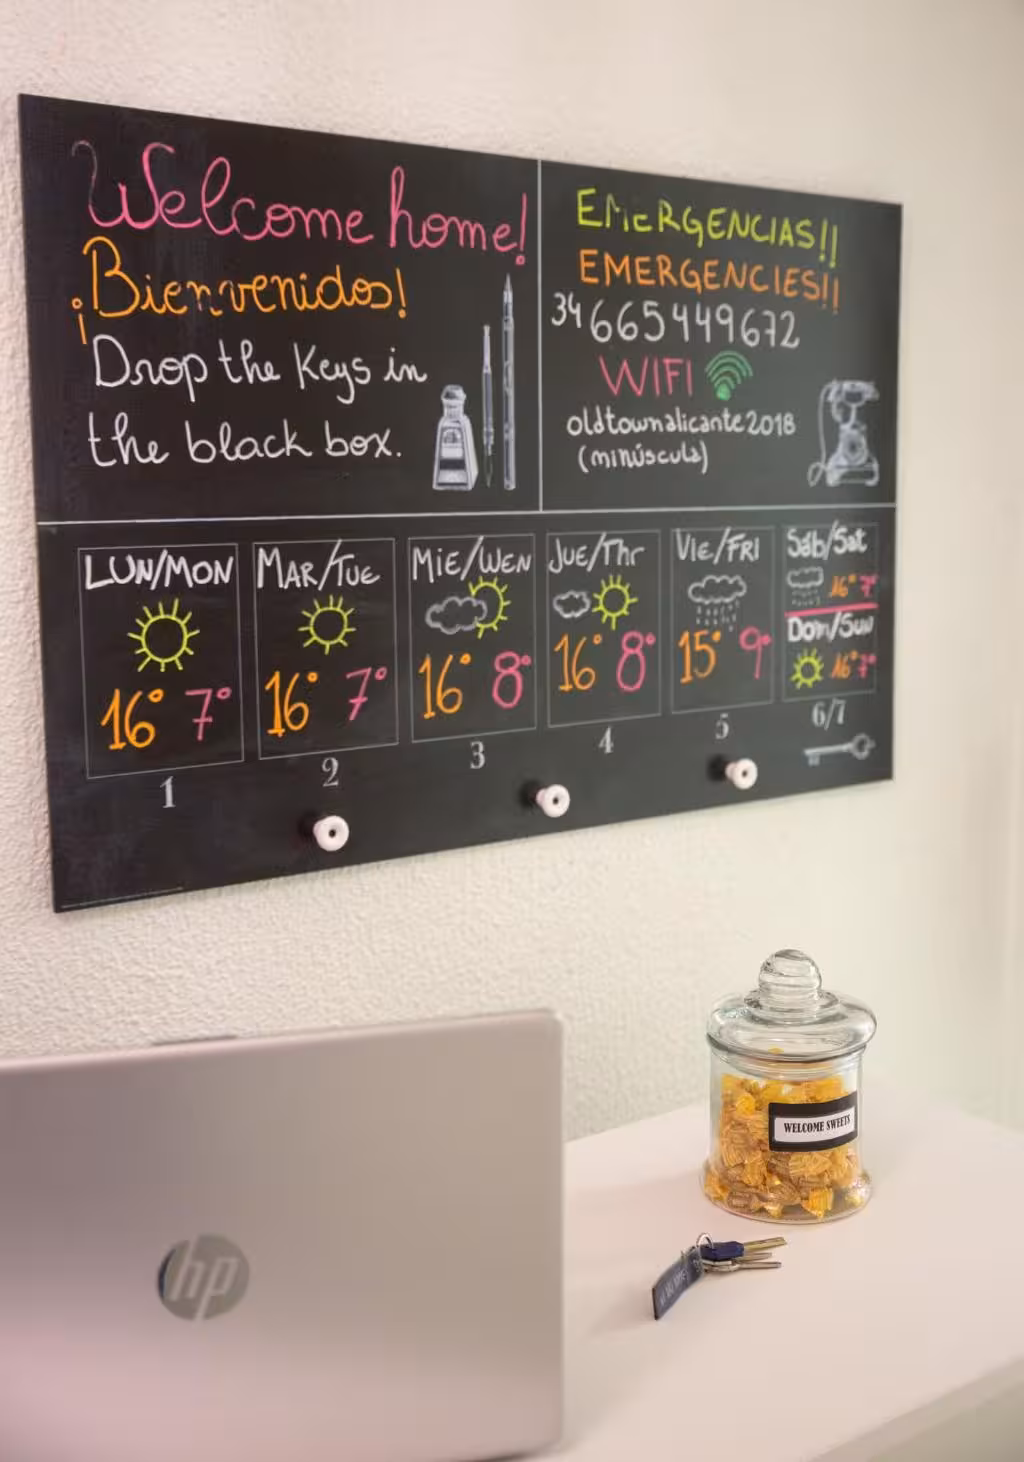 Welcome home!
¡Bienvenidos!
Drop the keys in
the black box.
EMERGENCIAS!!
EMERGENCIES!!
34 665449672
WIFI
oldtownalicante2018
(minúscula)
LUN/MON
16° 7°
1
MAR/TUE
16° 7°
2
MIE/WEN
16° 8°
3
JUE/Thr
16° 8°
4
VIE/FRI
15° 9°
5
Sáb/Sat
16° 7°
Dom/Sun
16° 7°
6/7
WELCOME SWEETS
hp